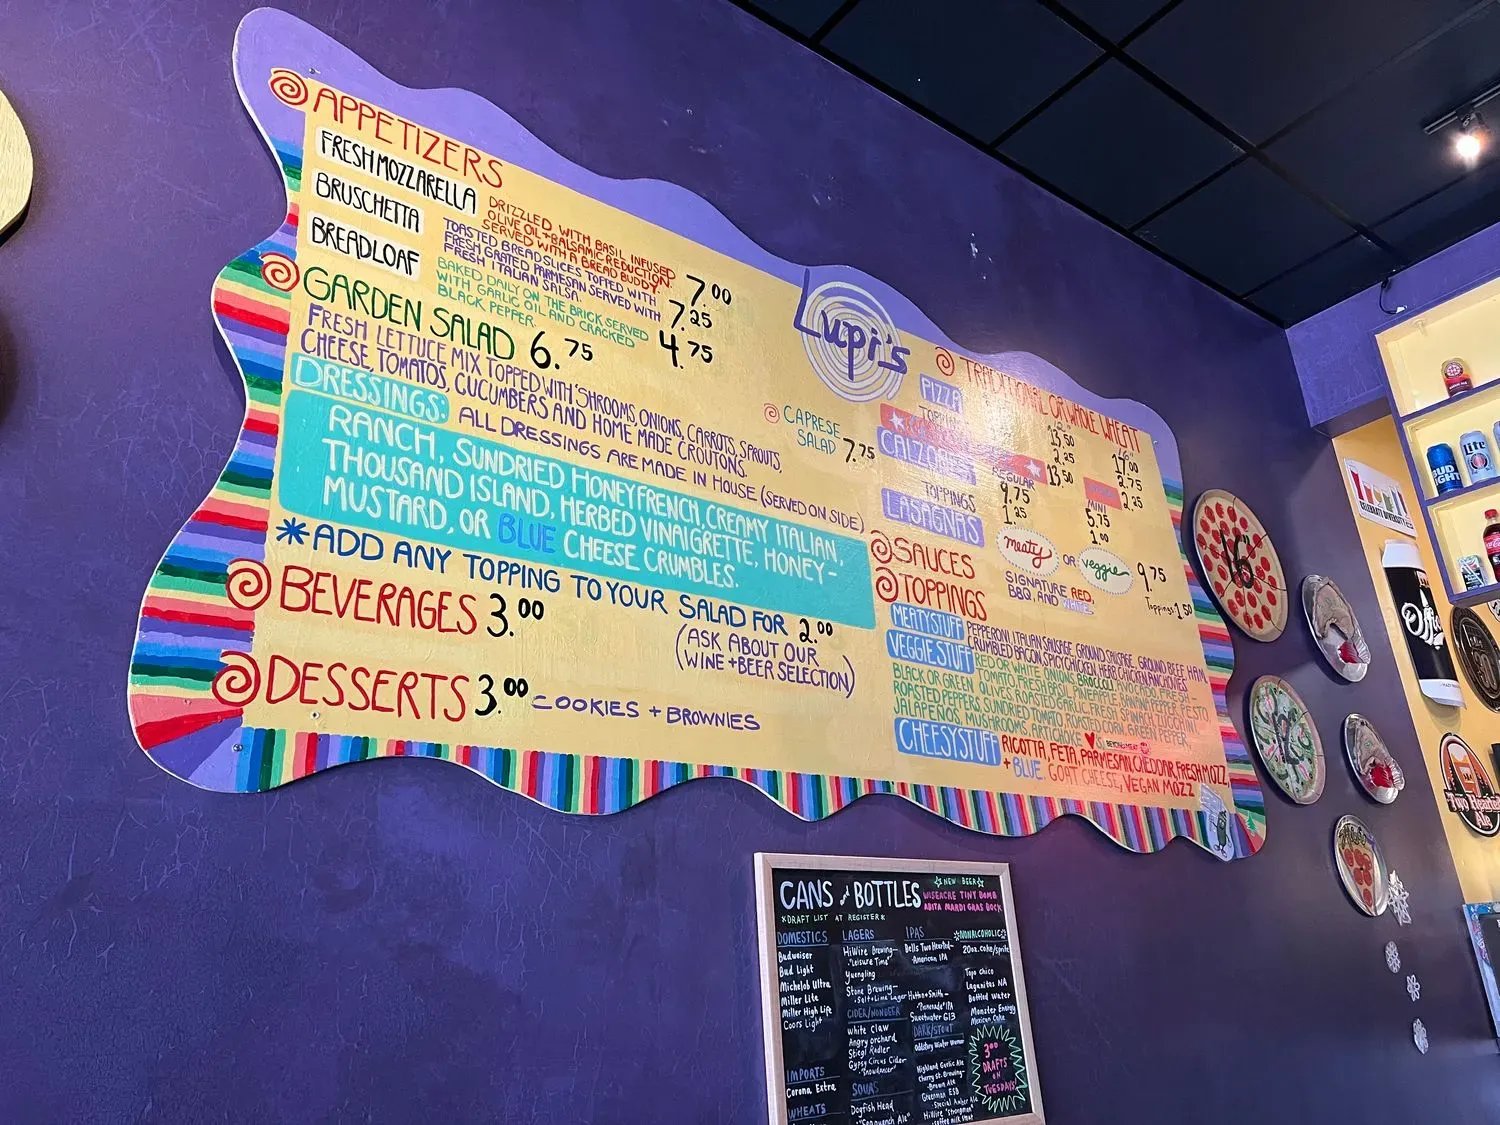 APPETIZERS
FRESH MOZZARELLA
DRIZZLED WITH BASIL INFUSED
OLIVE OIL + BALSAMIC REDUCTION.
SERVED WITH A BREAD BUDDY.
7.00
BRUSCHETTA
TOASTED BREAD SLICES TOPPED WITH
FRESH GRATED PARMESAN SERVED WITH
FRESH ITALIAN SALSA.
7.25
BREADLOAF
BAKED DAILY ON THE BRICK SERVED
WITH GARLIC OIL AND CRACKED
BLACK PEPPER.
4.75
GARDEN SALAD 6.75
FRESH LETTUCE MIX TOPPED WITH 'SHROOMS, ONIONS, CARROTS, SPROUTS,
CHEESE, TOMATOS, CUCUMBERS AND HOME MADE CROUTONS.
DRESSINGS:
ALL DRESSINGS ARE MADE IN HOUSE (SERVED ON SIDE)
RANCH, SUNDRIED HONEYFRENCH, CREAMY ITALIAN,
THOUSAND ISLAND, HERBED VINAIGRETTE, HONEY-
MUSTARD, OR BLUE CHEESE CRUMBLES.
*ADD ANY TOPPING TO YOUR SALAD FOR 2.00
BEVERAGES 3.00
(ASK ABOUT OUR
WINE + BEER SELECTION)
DESSERTS 3.00
COOKIES + BROWNIES
Lupi's
CAPRESE
SALAD 7.75
TRADITIONAL OR WHOLE WHEAT
PIZZA
13.50
2.25
17.00
2.75
CALZONES
13.50
2.25
REGULAR
9.75
5.75
TOPPINGS
1.25
1.00
LASAGNAS
meaty OR veggie 9.75
Toppings 1.50
SAUCES
SIGNATURE RED,
BBQ, AND WHITE
TOPPINGS
MEATYSTUFF
PEPPERONI, ITALIAN SAUSAGE, GROUND SAUSAGE, GROUND BEEF, HAM,
CRUMBLED BACON, SPICY CHICKEN, HERB CHICKEN, ANCHOVIES
VEGGIESTUFF
RED OR WHITE ONIONS, BROCCOLI, AVOCADO, FRESH
TOMATO, FRESH BASIL, PINEAPPLE, BANANA PEPPER, PESTO,
BLACK OR GREEN OLIVES, ROASTED GARLIC, FRESH SPINACH, ZUCCHINI,
ROASTED PEPPERS, SUNDRIED TOMATO, ROASTED CORN, GREEN PEPPER,
JALAPEÑOS, MUSHROOMS, ARTICHOKE ♥'S, BEYOND MEAT
CHEESYSTUFF
RICOTTA, FETA, PARMESAN, CHEDDAR, FRESH MOZZ,
+ BLUE, GOAT CHEESE, VEGAN MOZZ
16"
CELEBRATE DIVERSITY
BUD LIGHT
Lite
Two Hearted
Ale
CANS and BOTTLES
*DRAFT LIST AT REGISTER*
NEW BEER
WISEACRE TINY BOMB
ABITA MARDI GRAS BOCK
DOMESTICS
Budweiser
Bud Light
Michelob Ultra
Miller Lite
Miller High Life
Coors Light
IMPORTS
Corona Extra
WHEATS
LAGERS
HiWire Brewing-
"Leisure Time"
Yuengling
Stone Brewing-
Salt + Lime Lager
CIDER/NONBEER
White Claw
Angry Orchard
Stiegl Radler
Gypsy Circus Cider
"Snowdancer"
SOURS
Dogfish Head
IPAS
Bells Two Hearted-
American IPA
Hutton + Smith-
"Promenade" IPA
Sweetwater G13
DARK/STOUT
Oddstory Water Woman
Highland Gaelic Ale
Cherry St. Brewing-
Brown Ale
Greenman ESB
Special Amber Ale
HiWire "Strongman"
coffee milk stout
NONALCOHOLIC
20oz. Coke/Sprite
Topo Chico
Lagunitas NA
Bottled Water
Monster Energy
Mexican Coke
3.00
DRAFTS
ON
TUESDAYS!